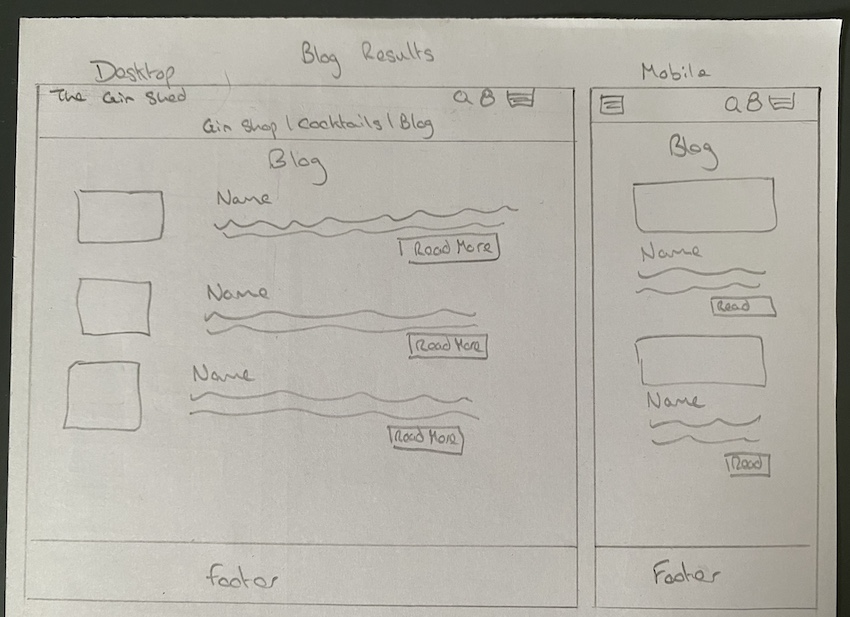 Blog Results
Desktop
The Gin Shed
Gin Shop | Cocktails | Blog
Blog
Name
Read More
Name
Read More
Name
Read More
Footer
Mobile
Blog
Name
Read
Name
Read
Footer